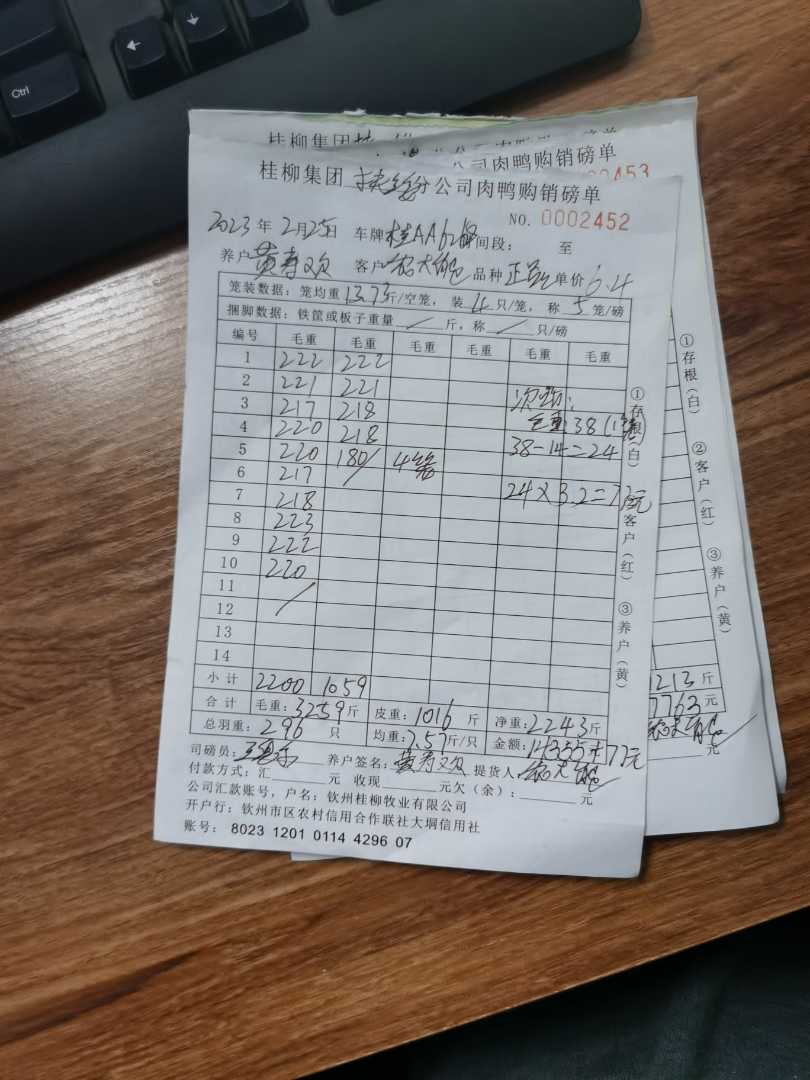 Ctrl
桂柳集团
公司肉鸭购销磅单
453
桂柳集团 分公司肉鸭购销磅单
NO. 0002452
2023年2月25日 车牌 桂AA 时间段: 至
养户 黄寿欢 客户 品种 正品 单价 6.4
笼装数据:笼均重 13.73斤/空笼,装 4 只/笼,称 5 笼/磅
捆脚数据:铁筐或板子重量 / 斤,称 / 只/磅
编号 毛重 毛重 毛重 毛重 毛重 毛重
1 222 222
2 221 221
3 217 218 次
4 220 218 毛重:38(1笼)
5 220 180/ 4笼 38-14=24
6 217 /
7 218 24×3.2=77元
8 223
9 222
10 220
11 /
12
13
14
小计 2200 1059
合计 毛重:3259斤 皮重:1016斤 净重:2243斤
总羽重:296只 均重:7.57斤/只 金额:14355+77元
司磅员: 养户签名:黄寿欢 提货人:
付款方式:汇 元 收现 元欠(余): 元
公司汇款账号,户名:钦州桂柳牧业有限公司
开户行:钦州市区农村信用合作联社大垌信用社
账号: 8023 1201 0114 4296 07
①存根(白)
②客户(红)
③养户(黄)
①存根(白)
客户(红)
③养户(黄)
1213斤
7763元
元